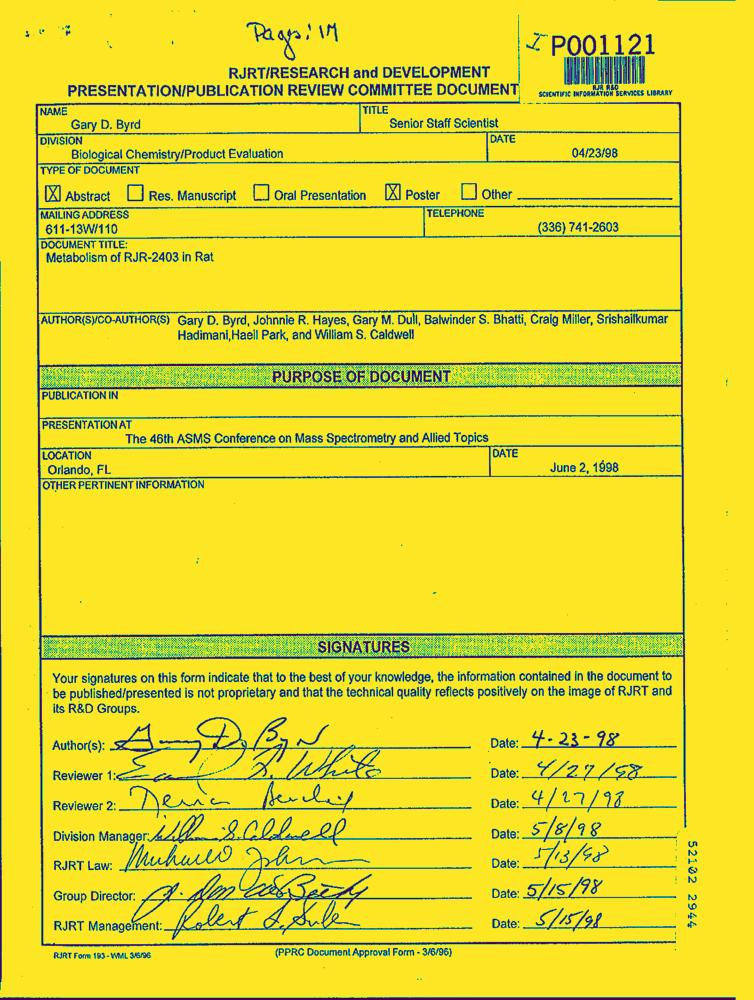 Pages: 14
I P001121
RJR R&D
SCIENTIFIC INFORMATION SERVICES LIBRARY
RJRT/RESEARCH and DEVELOPMENT
PRESENTATION/PUBLICATION REVIEW COMMITTEE DOCUMENT
NAME TITLE
Gary D. Byrd Senior Staff Scientist
DIVISION DATE
Biological Chemistry/Product Evaluation 04/23/98
TYPE OF DOCUMENT
☒ Abstract ☐ Res. Manuscript ☐ Oral Presentation ☒ Poster ☐ Other
MAILING ADDRESS TELEPHONE
611-13W/110 (336) 741-2603
DOCUMENT TITLE:
Metabolism of RJR-2403 in Rat
AUTHOR(S)/CO-AUTHOR(S) Gary D. Byrd, Johnnie R. Hayes, Gary M. Dull, Balwinder S. Bhatti, Craig Miller, Srishailkumar
Hadimani,Haeil Park, and William S. Caldwell
PURPOSE OF DOCUMENT
PUBLICATION IN
PRESENTATION AT
The 46th ASMS Conference on Mass Spectrometry and Allied Topics
LOCATION DATE
Orlando, FL June 2, 1998
OTHER PERTINENT INFORMATION
SIGNATURES
Your signatures on this form indicate that to the best of your knowledge, the information contained in the document to
be published/presented is not proprietary and that the technical quality reflects positively on the image of RJRT and
its R&D Groups.
Author(s): Gary D. Byrd Date: 4-23-98
Reviewer 1: White Date: 4/27/98
Reviewer 2: Date: 4/27/98
Division Manager: William S. Caldwell Date: 5/8/98
RJRT Law: Date: 5/13/98
Group Director: Date: 5/15/98
RJRT Management: Robert Date: 5/15/98
RJRT Form 193 - WML 3/6/96 (PPRC Document Approval Form - 3/6/96)
52102 2944